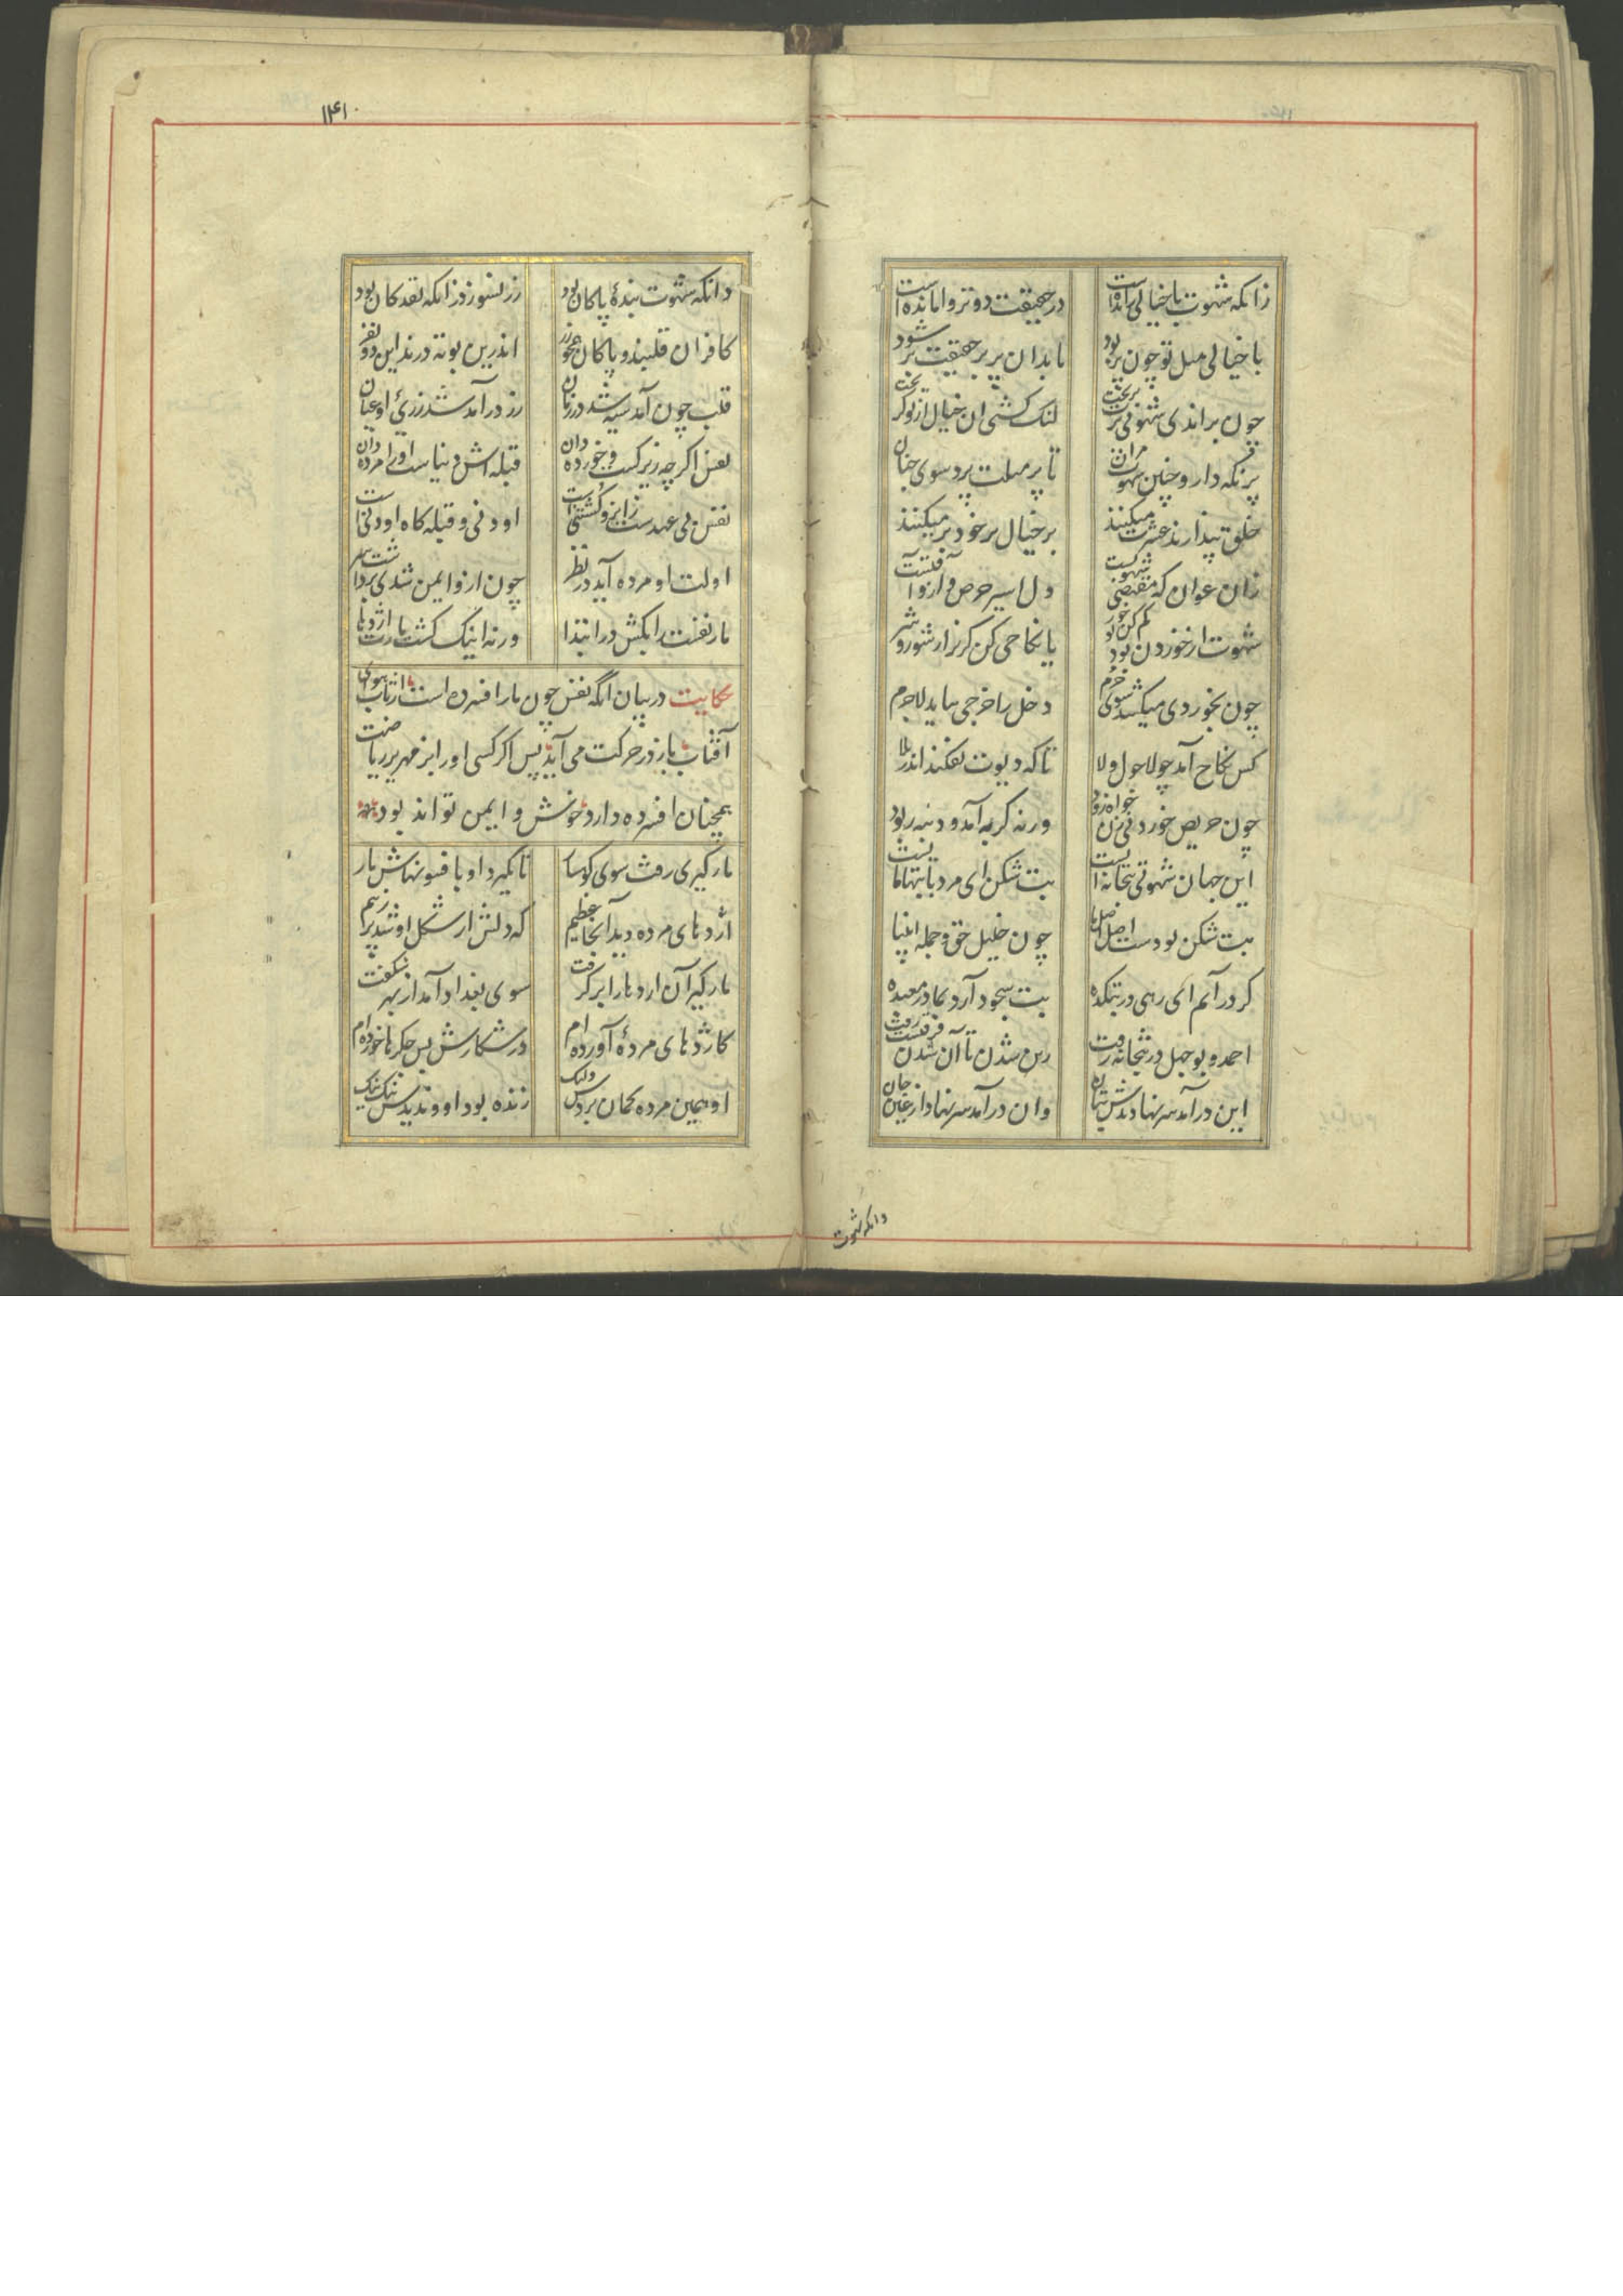 زانکه شهوت با خیالی رانده است در حقیقت دورتر وامانده است
با خیالی میل تو چون پر بود تا بدان پر بر حقیقت بر شود
چون براندی شهوتی پرت بریخت لنک کشتی ان خیال از تو کریخت
پر نکه دار و چنین شهوت مران تا پر میلت برد سوی جنان
خلق پندارند عشرت میکنند بر خیالی پر خود بر میکنند
زان عوان
دل اسیر حرص و از و آفتست
شهوت از خوردن بود کم کن ز خور یا نکاحی کن کریزان شو ز شر
چون بخوردی میکشد سوی حرم دخل را خرجی بباید لاجرم
پس نکاح آمد چو لاحول و لا تا که دیوت نفکند اندر بلا
چون حریص خوردنی زن خواه زود ورنه کربه آمد و دنبه ربود
این جهان شهوتی بتخانه ایست
بت شکن بودست اصل اصل ما چون خلیل حق و جمله انبیا
کر در آیم ای رهی در بتکده بت سجود آرد نه ما در معبده
احمد و بوجهل در بتخانه رفت زین شدن تا آن شدن فرقیست زفت
این درآمد سر نهادندش بتان وان درآمد سر نهاد
وانکه شهوت
۱۴۱
وانکه شهوت بندهٔ پاکان بود زر نسوزد زانکه نقد کان بود
کافران قلبند و پاکان همچو زر اندرین بوته درند این دو نفر
قلب چون آمد سیه شد در زمان زر درآمد شد زری او عیان
نفس اکرچه زیرکست و خورده دان قبله اش دنیاست او را مرده دان
نفس بی عهدست زانرو کشتنی است او دنی و قبله کاه او دنی است
اولت او مرده آید در نظر
مار نفست را بکش در ابتدا ورنه اینک کشت مارت اژدها
حکایت در بیان آنکه نفس چون مار افسرده است با از تاب هوی
آفتاب باز در حرکت می آید پس اکر کسی او را بزمهریر ریاضت
همچنان افسرده دارد خوش و ایمن تواند بود
مار کیری رفت سوی کوهسار تا بکیرد او بافسونهاش مار
اژدهای مرده دید آنجا عظیم که دلش از شکل او شد پر ز بیم
مارکیر آن اژدها را بر کرفت سوی بغداد آمد از بهر شکفت
کاژدهای مردهٔ آورده ام در شکارش بس جکرها خورده ام
او همین مرده کمان بردش ولیک زنده بود او و ندیدش نیک نیک